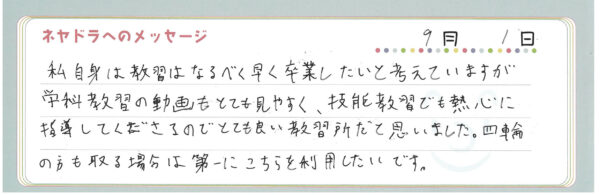 ネヤドラへのメッセージ
9月 1日
私自身は教習はなるべく早く卒業したいと考えていますが
学科教習の動画もとても見やすく、技能教習でも熱心に
指導してくださるのでとても良い教習所だと思いました。四輪
の方も取る場合は第一にこちらを利用したいです。